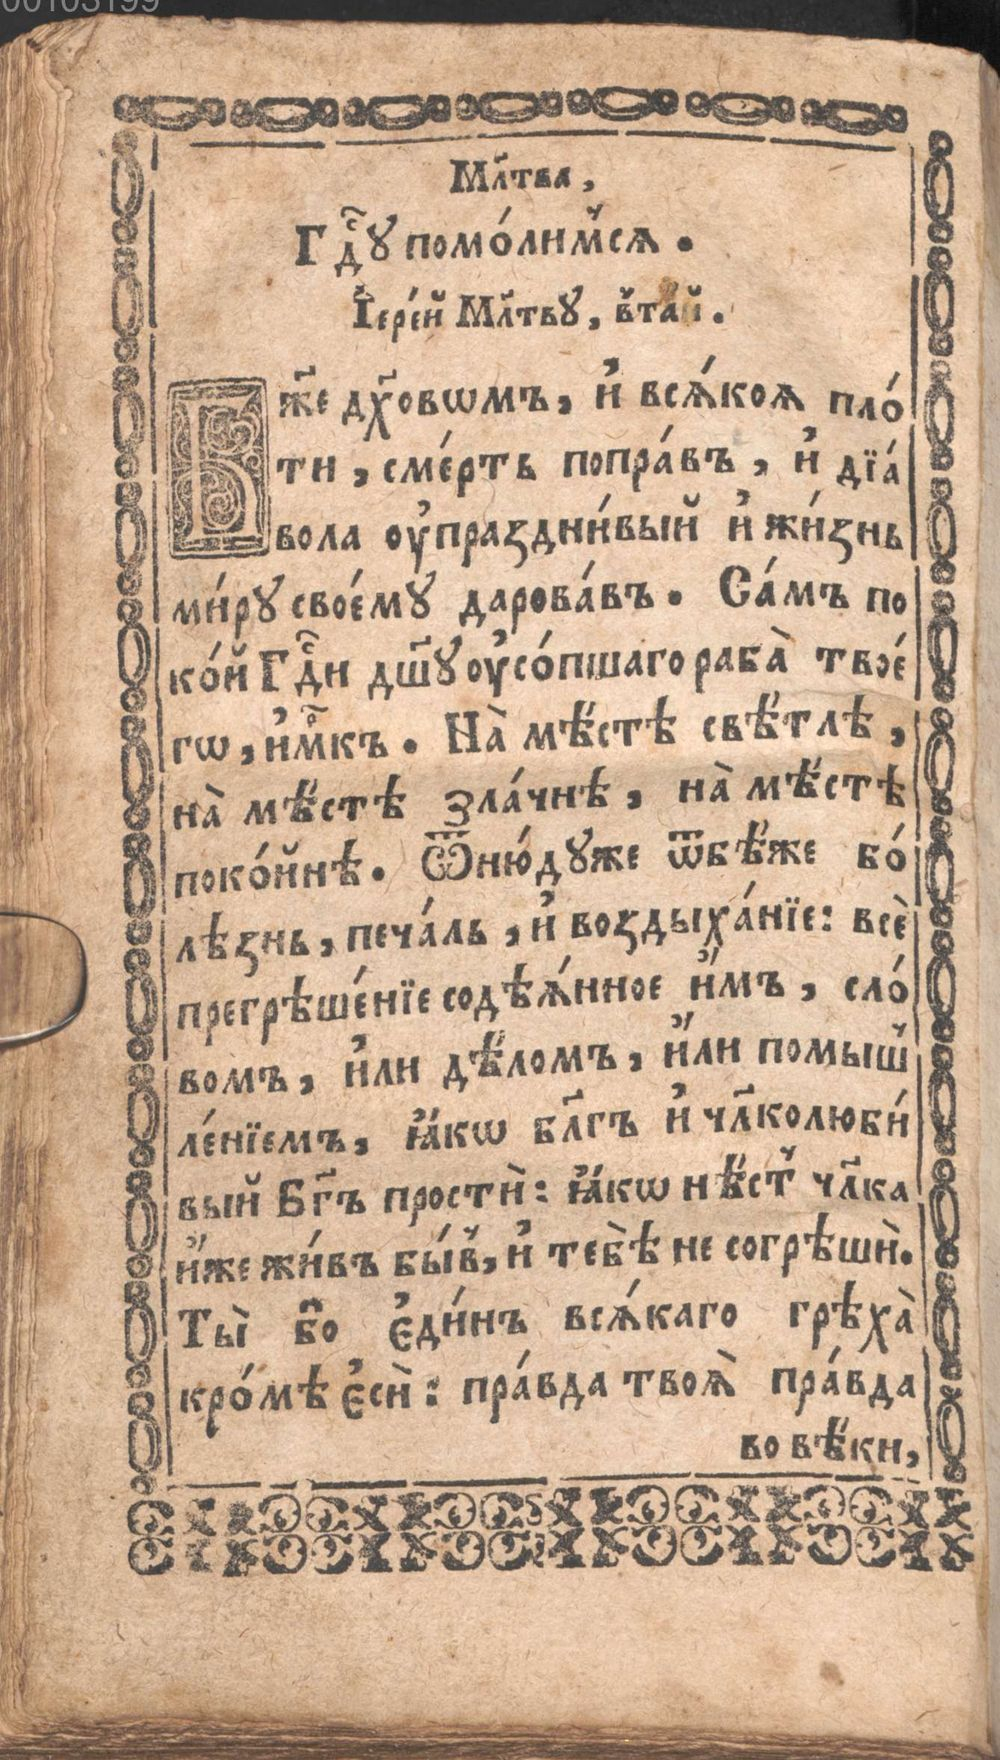 00103199
Млⷭ҇тва,
Гдⷭ҇ꙋ помо́лимсѧ.
І҆ере́й Млⷭ҇твꙋ, в̾та́й.
Бж҃е дх҃овѡмъ, и҆ всѧ́коѧ пло́
ти, сме́рть попра́въ, и҆ дїа́
вола оу҆праздни́вый и҆ жи́знь
ми́рꙋ свое́мꙋ дарова́въ. Са́мъ по
ко́й Гдⷭ҇и дш҃ꙋ оу҆со́пшаго раба̀ твое́
гѡ, и҆мⷬ҇къ. На̀ мѣ́стѣ свѣ́тлѣ,
на̀ мѣ́стѣ зла́чнѣ, на̀ мѣ́стѣ
поко́йнѣ. Ѿню́дꙋже ѿбѣ́же бо́
лѣзнь, печа́ль, и҆ воздыха́нїе: всѐ
прегрѣше́нїе содѣѧ́нное и҆́мъ, сло́
вомъ, и҆ли дѣ́ломъ, и҆́ли помыш̾
ле́нїемъ, ꙗ҆́кѡ бл҃гъ и҆ чл҃колюби́
вый Бг҃ъ прости̑: ꙗ҆́кѡ нѣ́ст̾ чл҃ка
и҆́же жи́въ бы́в̾, и҆ тебѣ̀ не согрѣши̑.
Ты̀ бо є҆ди́нъ всѧ́каго грѣха̀
кро́мѣ є҆сѝ: пра́вда твоѧ̀ пра́вда
во вѣ́ки,